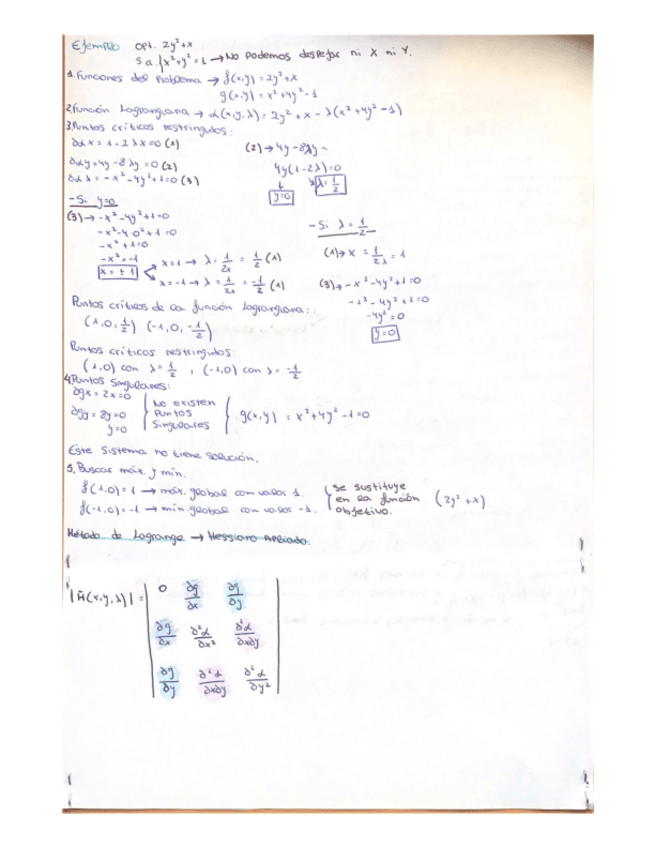 Ejemplo opt. 2y²+x
s.a. {x²+y²=1 → No podemos despejar ni x ni y.
1. Funciones del problema → f(x,y) = 2y²+x
g(x,y) = x²+4y²-1
2. Función Lagrangiana → α(x,y,λ) = 2y²+x-λ(x²+4y²-1)
3. Puntos críticos restringidos:
∂α x = 1-2λx=0 (1)
∂α y = 4y-8λy=0 (2)
∂α λ = -x²-4y²+1=0 (3)
(2) → 4y-8λy =
4y(1-2λ)=0
y=0
λ=1/2
- Si y=0
(3) → -x²-4y²+1=0
-x²-4·0²+1=0
-x²+1=0
-x²=-1
x=±1
x=1 → λ=1/2x=1/2 (1)
x=-1 → λ=1/2x=-1/2 (1)
- Si λ=1/2
(1) → x=1/2λ=1
(3) → -x²-4y²+1=0
-1²-4y²+1=0
-4y²=0
y=0
Puntos críticos de la función Lagrangiana:
(1,0,1/2) (-1,0,-1/2)
Puntos críticos restringidos:
(1,0) con λ=1/2, (-1,0) con λ=-1/2
4. Puntos singulares:
∂gx = 2x=0
∂gy = 8y=0
y=0
No existen
puntos
singulares
g(x,y) = x²+4y²-1=0
Este sistema no tiene solución.
5. Buscar máx. y mín.
f(1,0)=1 → máx. global con valor 1.
f(-1,0)=-1 → mín. global con valor -1.
se sustituye
en la función (2y²+x)
objetivo.
Método de Lagrange → Hessiano Ampliado.
|H̄(x,y,λ)| =
0 ∂g/∂x ∂g/∂y
∂g/∂x ∂²α/∂x² ∂²α/∂x∂y
∂g/∂y ∂²α/∂x∂y ∂²α/∂y²